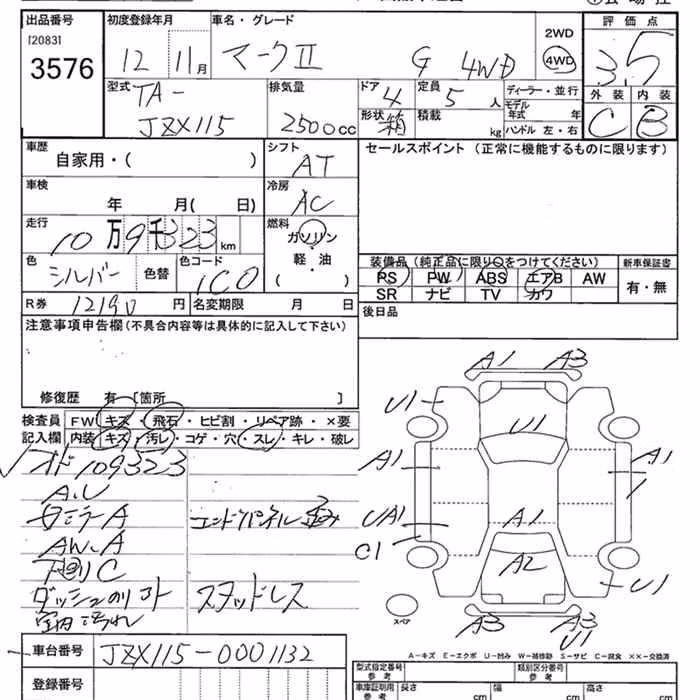 出品番号 初度登録年月 車名・グレード 2WD 評価点
[2083] 12 11月 マークⅡ G 4WD 4WD 3.5
3576
型式 排気量 ドア 定員 ディーラー・並行 外装 内装
TA- 4 5人 モデル年式 年
JZX115 2500cc 形状 箱 積載 kg ハンドル 左・右 C B
車歴 シフト セールスポイント (正常に機能するものに限ります)
自家用・( ) AT
車検 冷房
年 月( 日) AC
走行 燃料
10万9千323km ガソリン
色 色コード 軽・油 装備品(純正品に限り○をつけてください) 新車保証書
シルバー 色替 1C0 ( ) PS PW ABS エアB AW 有・無
R券 12190円 名変期限 月 日 SR ナビ TV カワ
注意事項申告欄(不具合内容等は具体的に記入して下さい) 後日品
修復歴 有 [箇所 ]
検査員 FW キズ・飛石・ヒビ割・リペア跡・×要
記入欄 内装 キズ・汚レ・コゲ・穴・スレ・キレ・破レ
109323
A.U
ミラーA エンドパネル歪み
AW.A
下廻りC
ダッシュのリフト スタッドレス
室内汚れ
A1 A3
U1
U1
A1 A1
UA1 A1
C1 A2
U1
スペア A3 A3
U1
A-キズ E-エクボ U-凹み W-補修跡 S-サビ C-腐食 ××-交換済
車台番号 JZX115-0001132 型式指定番号 類別区分番号
参考
登録番号 車庫証明用 長さ 幅 高さ
参考 cm cm cm